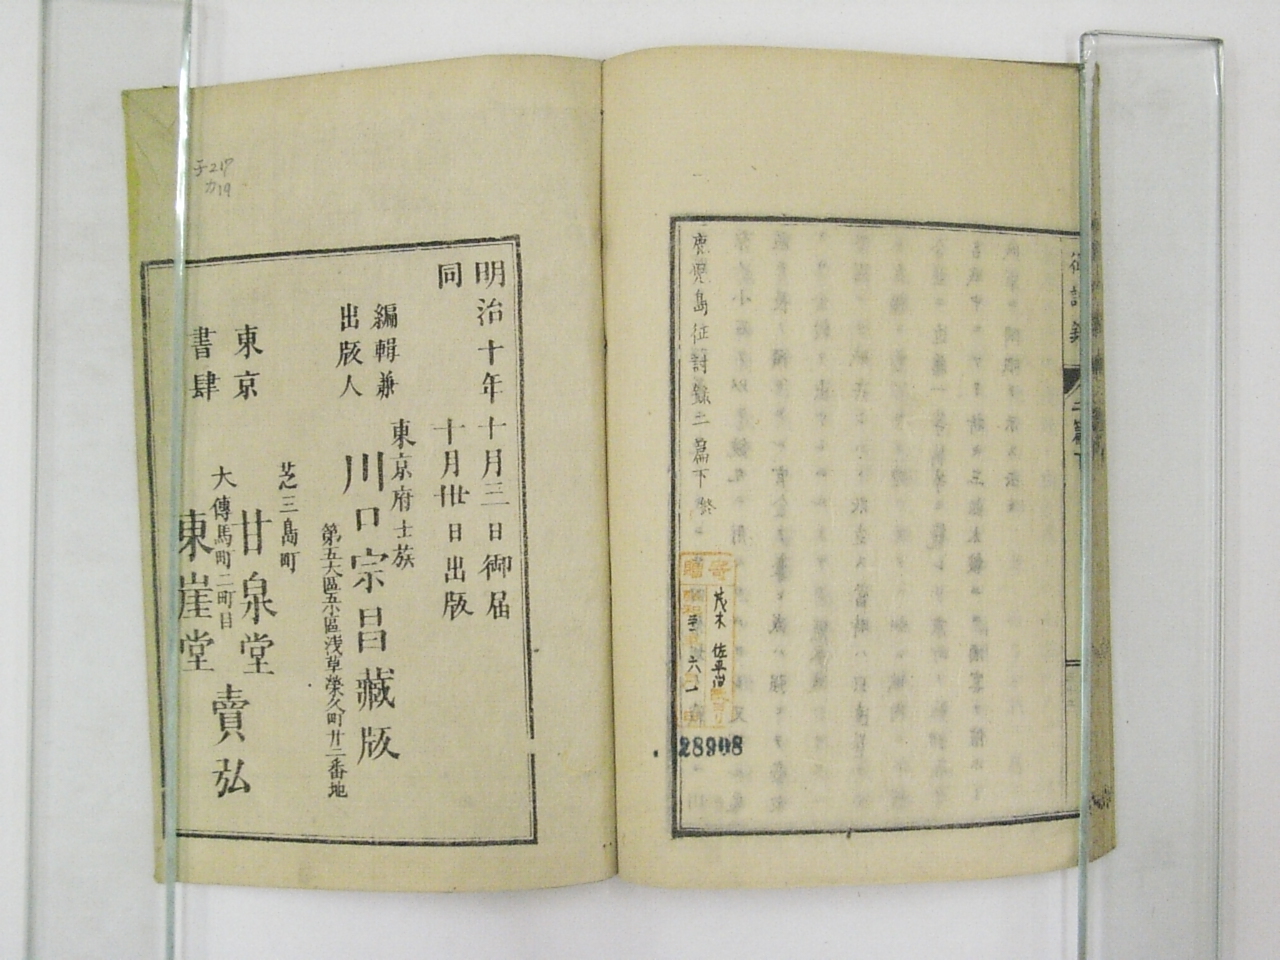 征討録
二篇下
鹿児島征討録二篇下終
寄贈
茂木佐平治
28908
明治十年十月三日御届
同 十月卅日出版
編輯兼
出版人
東京府士族
川口宗昌藏版
第五大區五小區浅草榮久町廿二番地
東京
書肆
芝三島町
甘泉堂
大傳馬町二町目
東崖堂
賣弘
子217
カ19